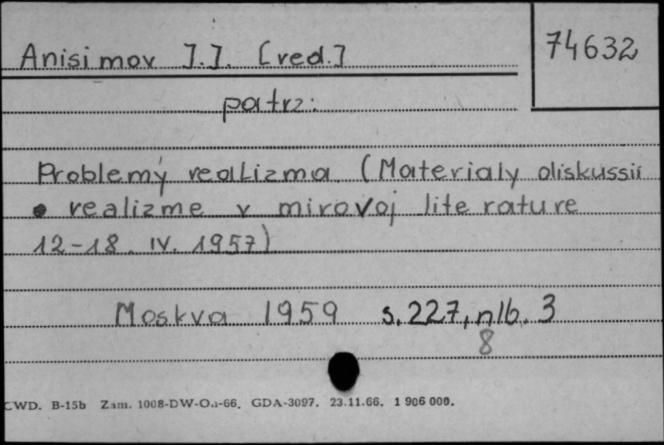 Anisimov I.I. [red.]
74632
patrz:
Problemy realizma (Materialy diskussii
o realizme v mirovoj literature
12-18. IV. 1957)
Moskva 1959 s. 227, nlb. 3
8
CWD. B-15b Zam. 1008-DW-Oa-66. GDA-3097. 23.11.66. 1 906 000.